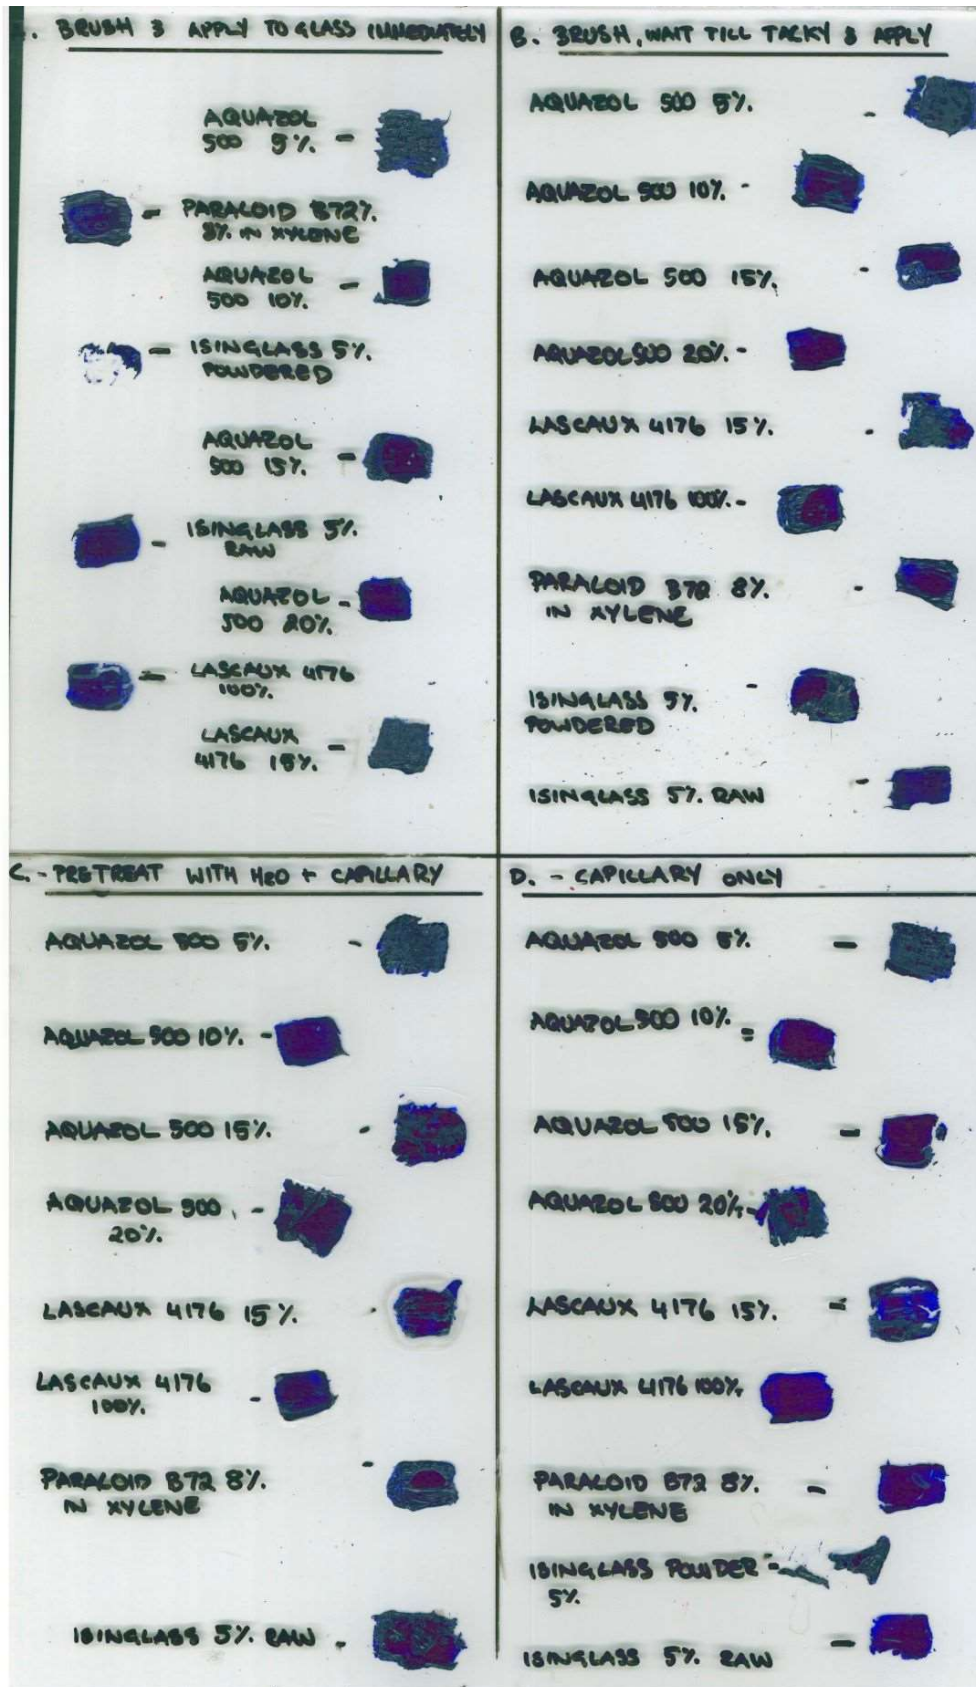 . BRUSH & APPLY TO GLASS IMMEDIATELY
AQUAZOL
500 5%. -
- PARALOID B72%.
8%. IN XYLENE
AQUAZOL
500 10%. -
- ISINGLASS 5%.
POWDERED
AQUAZOL
500 15%. -
- ISINGLASS 5%.
RAW
AQUAZOL -
500 20%.
- LASCAUX 4176
100%.
LASCAUX
4176 15%. -
B. BRUSH, WAIT TILL TACKY & APPLY
AQUAZOL 500 5%. -
AQUAZOL 500 10%. -
AQUAZOL 500 15%. -
AQUAZOL 500 20%. -
LASCAUX 4176 15%. -
LASCAUX 4176 100%. -
PARALOID B72 8%. -
IN XYLENE
ISINGLASS 5%. -
POWDERED
ISINGLASS 5%. RAW -
C. - PRETREAT WITH H2O + CAPILLARY
AQUAZOL 500 5%. -
AQUAZOL 500 10%. -
AQUAZOL 500 15%. -
AQUAZOL 500 -
20%.
LASCAUX 4176 15%. -
LASCAUX 4176
100%. -
PARALOID B72 8%. -
IN XYLENE
ISINGLASS 5%. RAW -
D. - CAPILLARY ONLY
AQUAZOL 500 5%. -
AQUAZOL 500 10%. =
AQUAZOL 500 15%. -
AQUAZOL 500 20%. -
LASCAUX 4176 15%. =
LASCAUX 4176 100%.
PARALOID B72 8%. -
IN XYLENE
ISINGLASS POWDER -
5%.
ISINGLASS 5%. RAW -